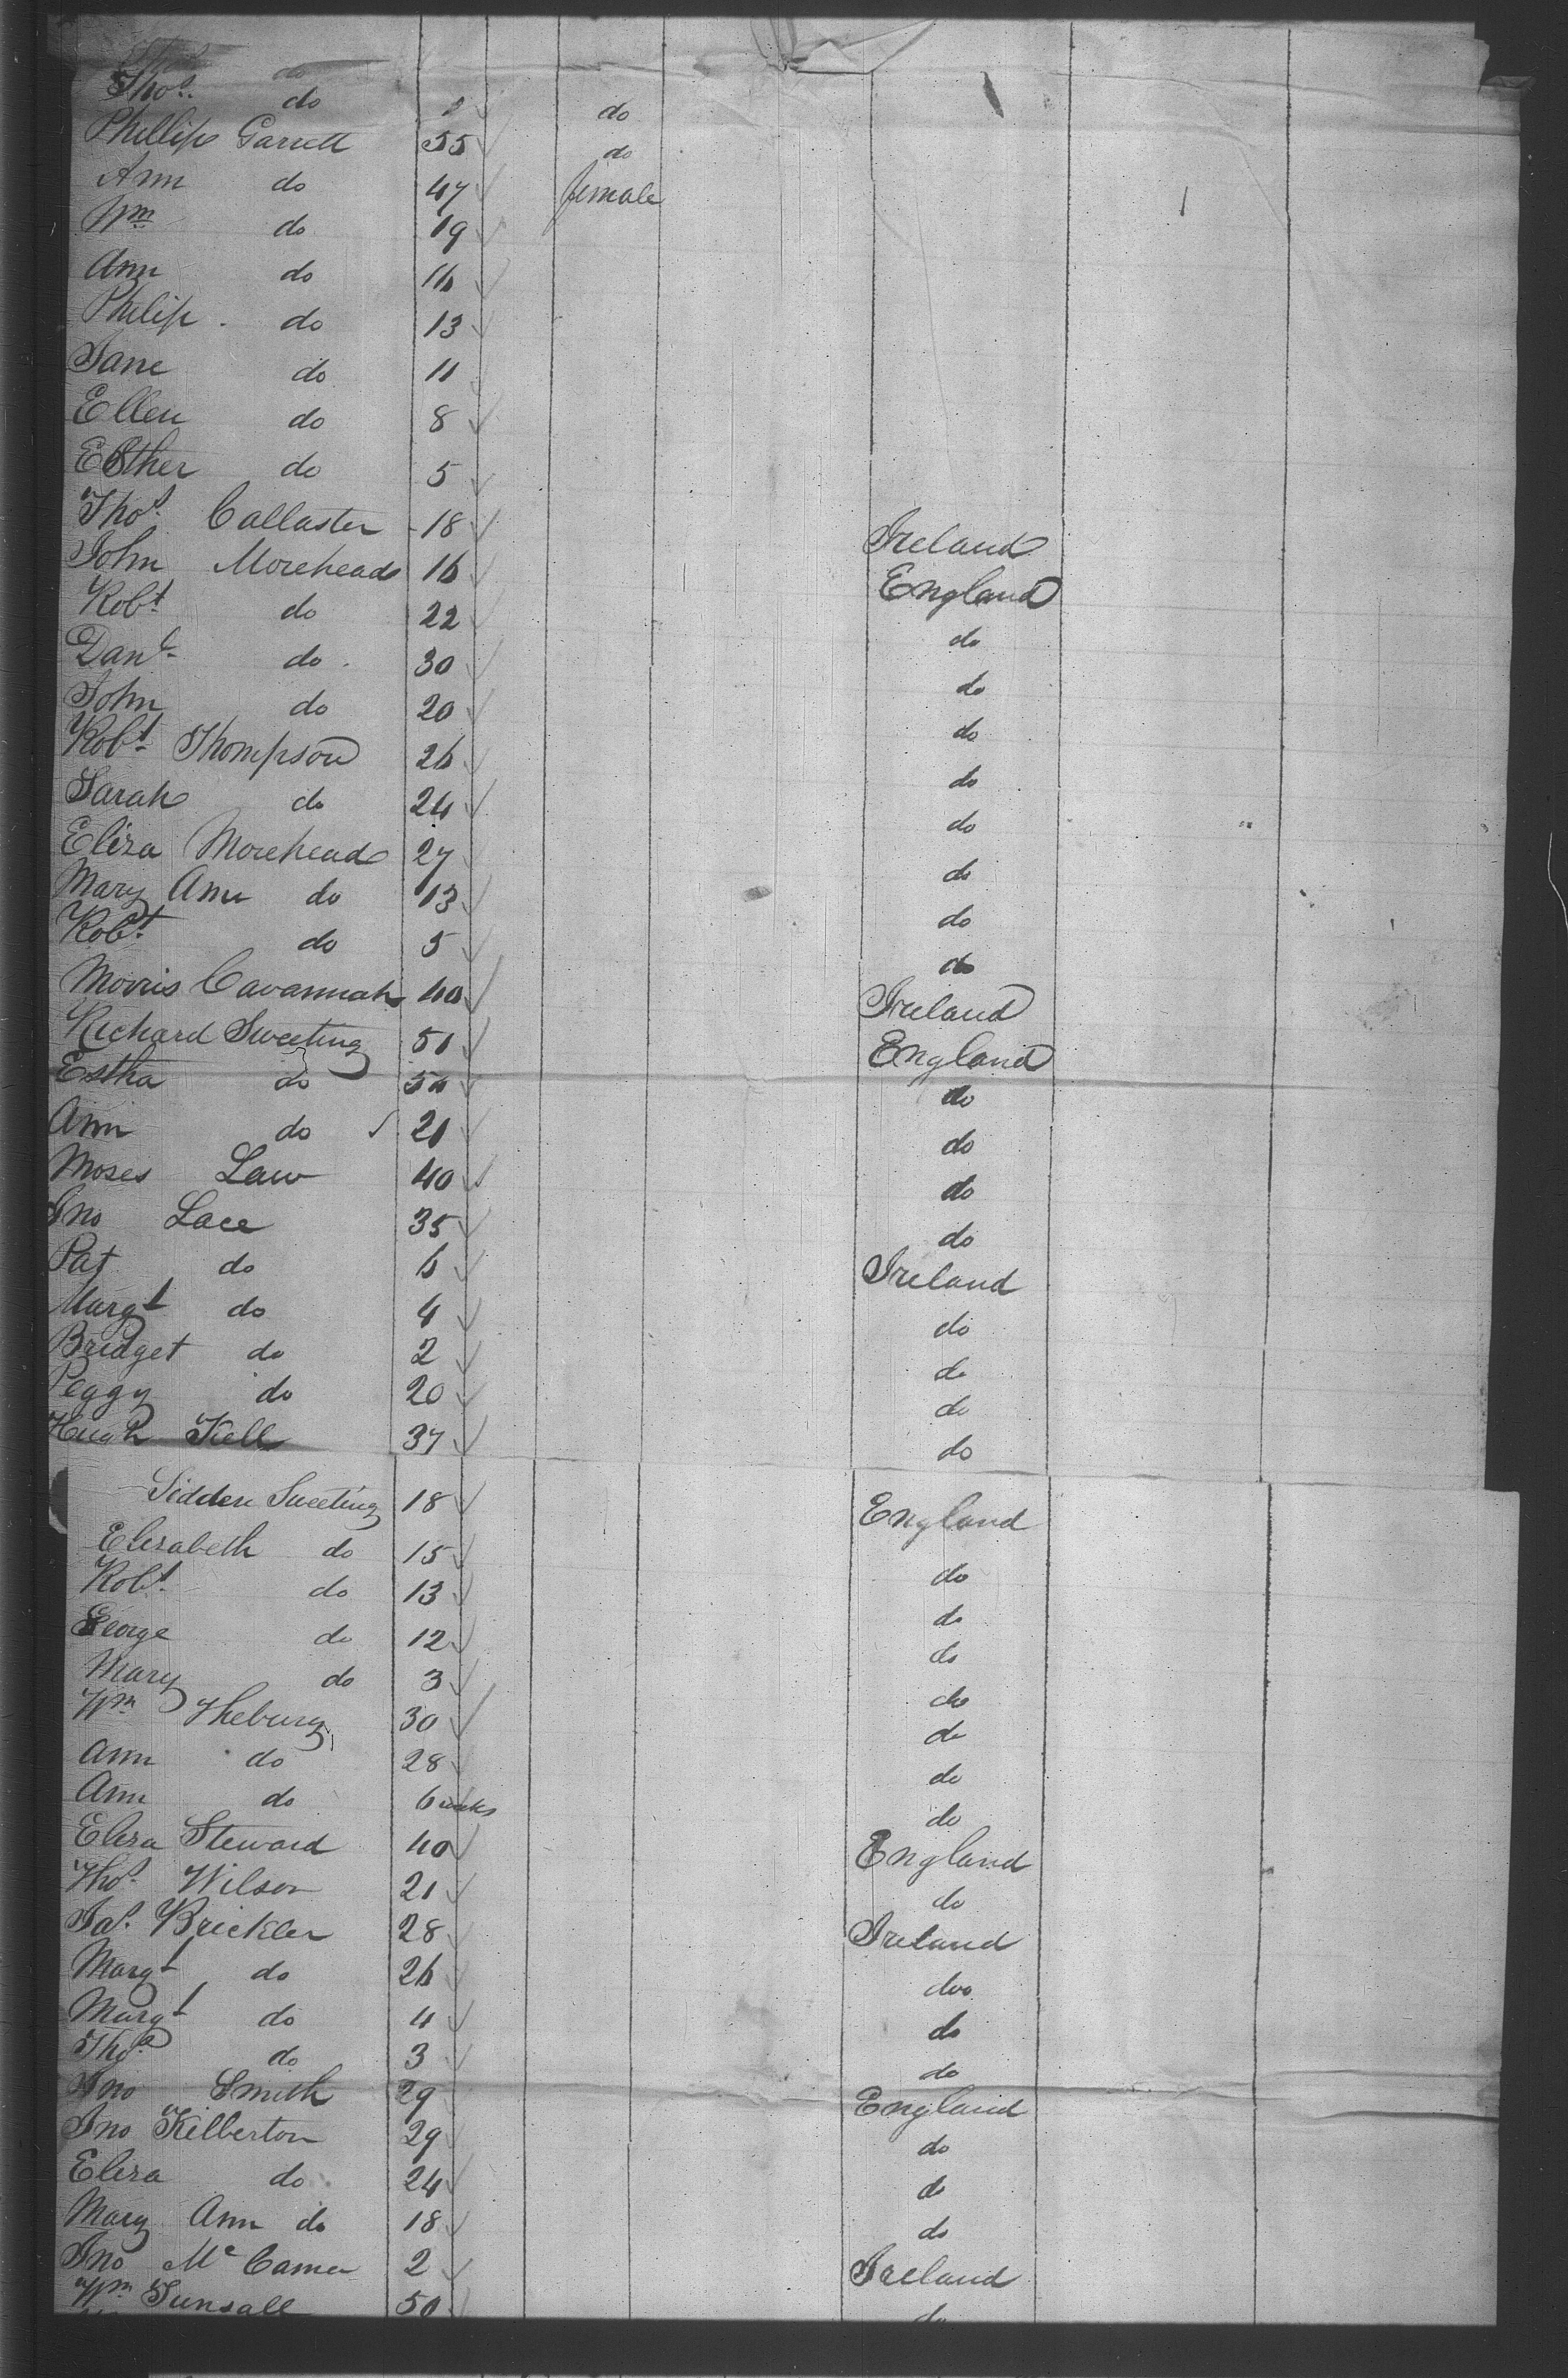 Thos. do do
Phillip Garrett 55 do
Ann do 47 female
Wm do 19
Ann do 16
Philip do 13
Jane do 11
Ellen do 8
Esther do 5
Thos. Callaster 18 Ireland
John Morehead 16 England
Robt. do 22 do
Danl. do 30 do
John do 20 do
Robt. Thompson 26 do
Sarah do 24 do
Eliza Morehead 27 do
Mary Ann do 13 do
Robt. do 5 do
Morris Cavannah 40 Ireland
Richard Sweeting 51 England
Estha do 50 do
Ann do 21 do
Moses Law 40 do
Jno Lace 35 do
Pat do 6 Ireland
Margt do 4 do
Bridget do 2 do
Peggy do 20 do
Hugh Kell 37 do
Sweeting 18 England
Elisabeth do 15 do
Robt. do 13 do
George do 12 do
Mary do 3 do
Wm 30 do
Ann do 28 do
Ann do 6 weeks do
Eliza Steward 40 England
Thos. Wilson 21 do
Jas. Brickler 28 Ireland
Margt do 26 do
Margt do 4 do
Thos. do 3 do
Jno Smith 29 England
Jno Kilberton 29 do
Eliza do 24 do
Mary Ann do 18 do
Jno 2 Ireland
Wm Tunsall 50 do